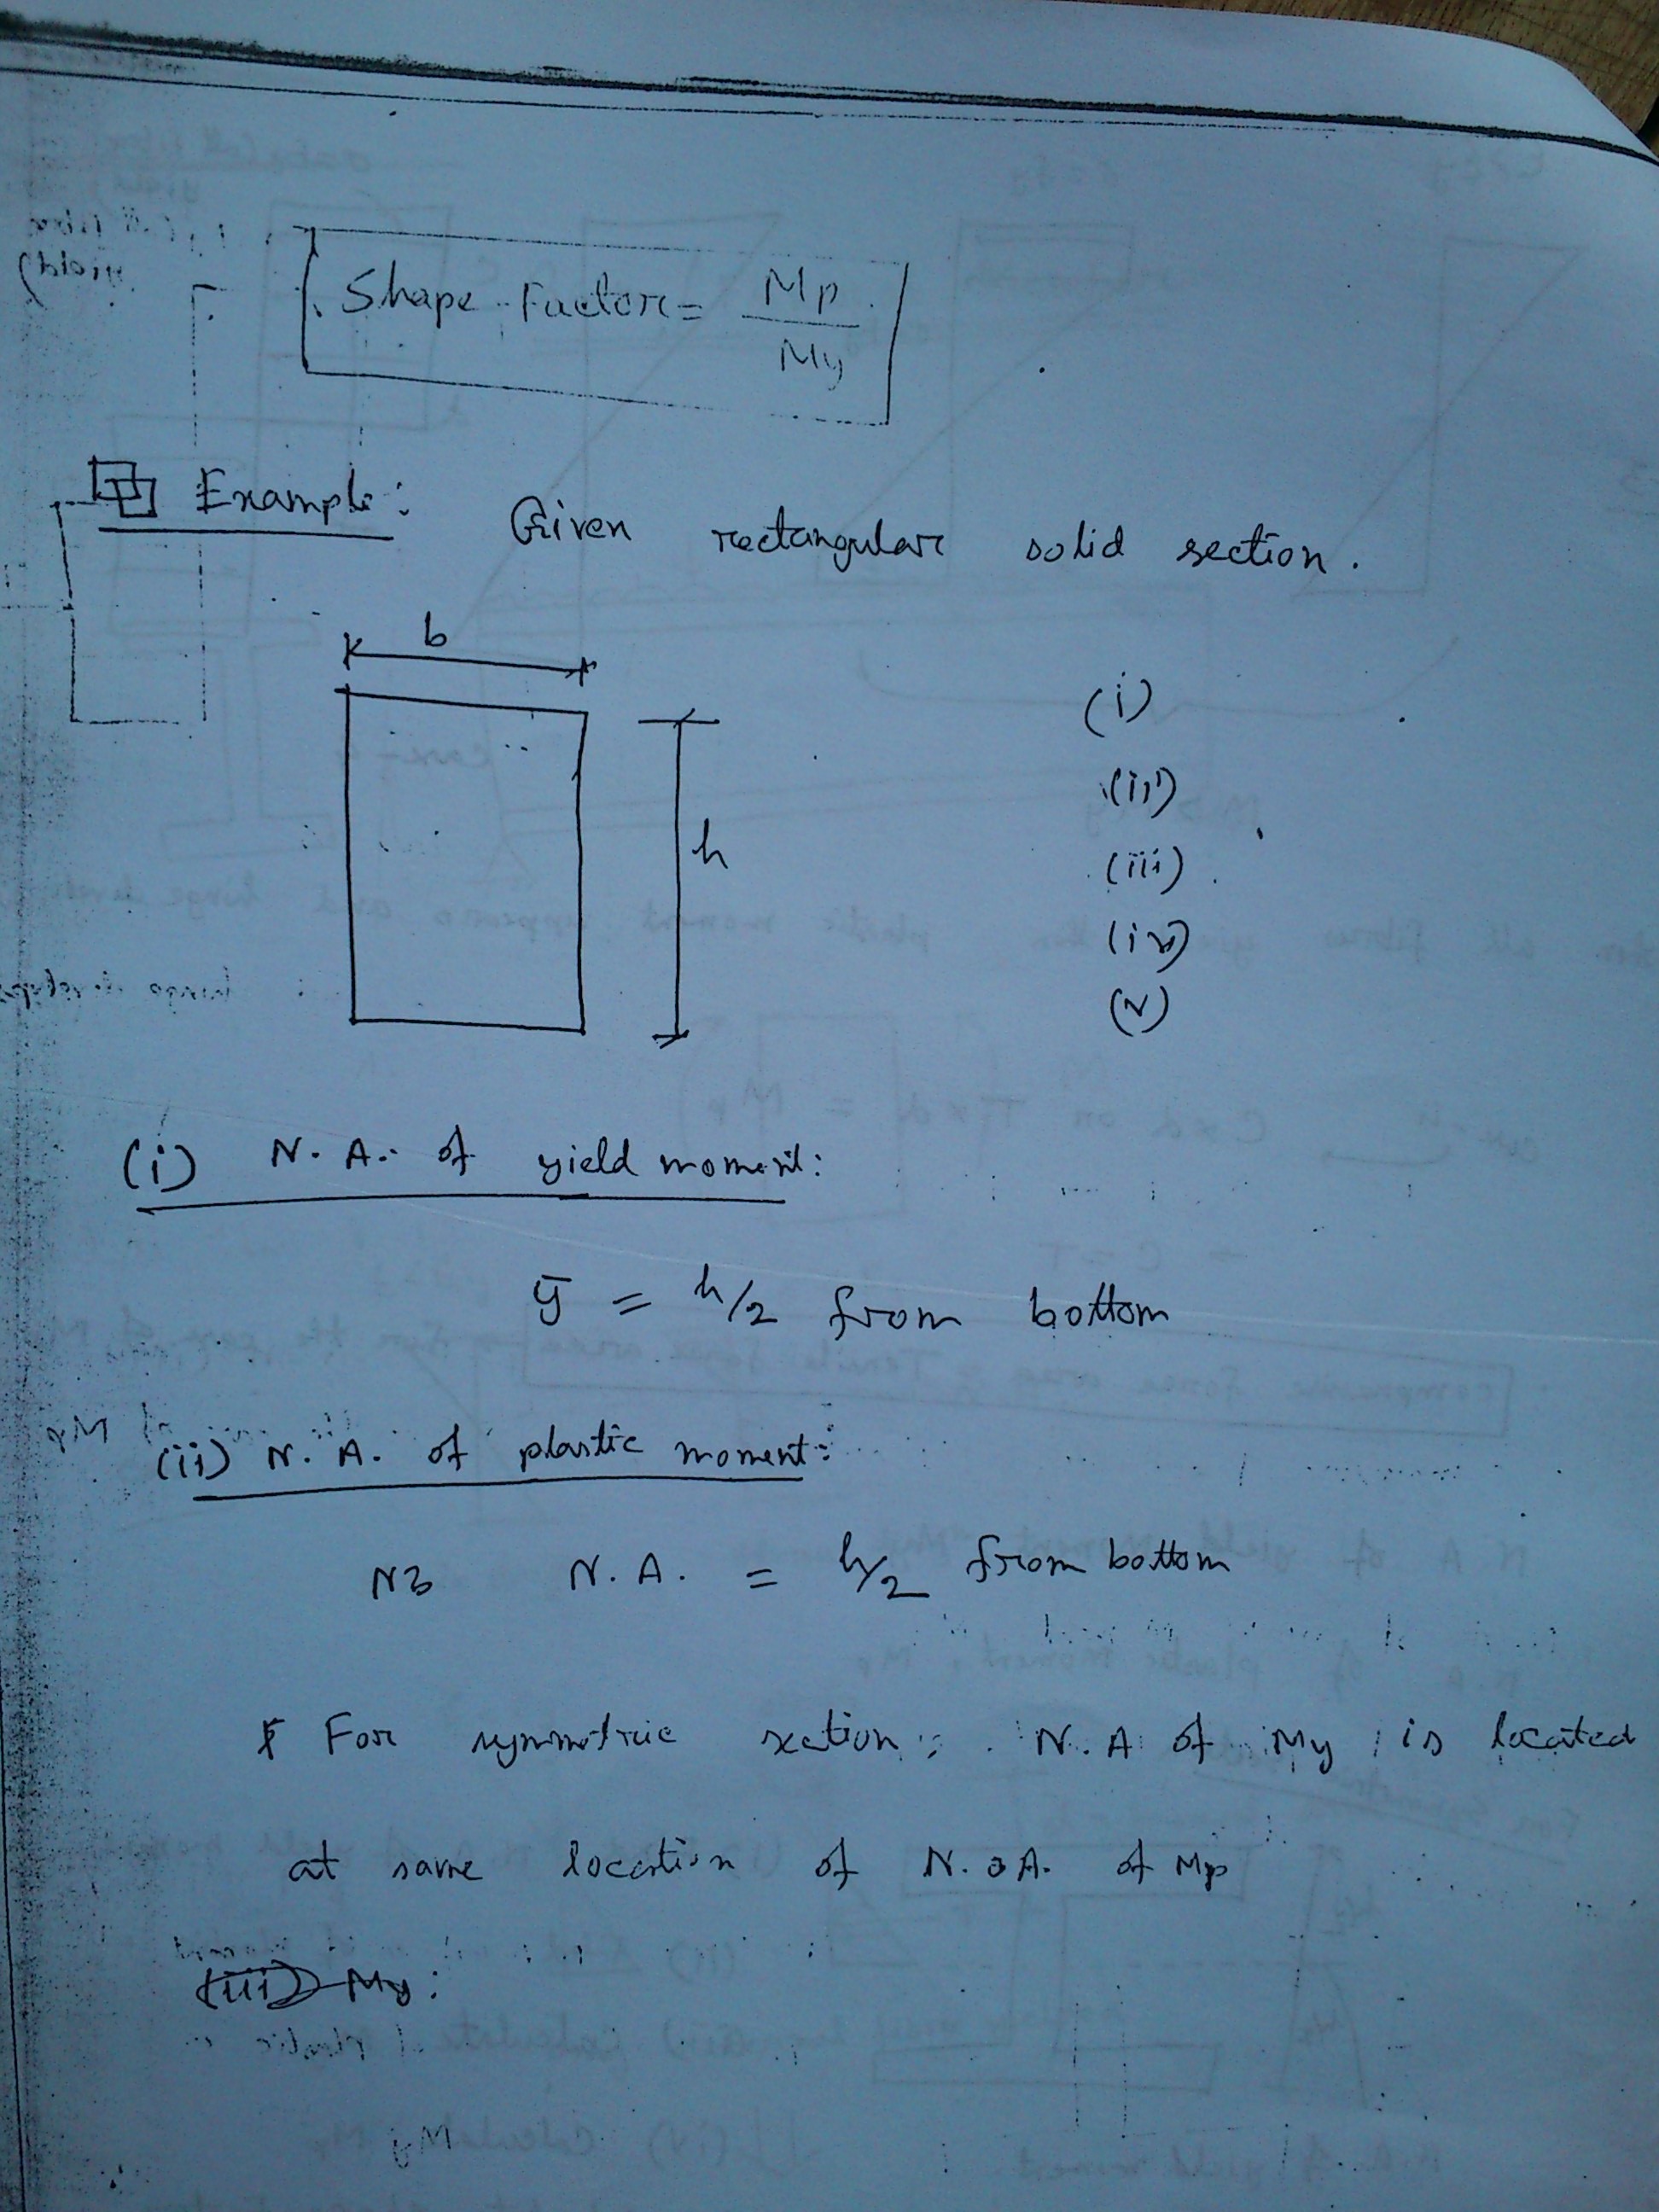 Shape Factor = Mp / My
Example: Given rectangular solid section.
b
h
(i)
(ii)
(iii)
(iv)
(v)
(i) N. A. of yield moment:
ȳ = h/2 from bottom
(ii) N. A. of plastic moment:
N. A. = h/2 from bottom
* For symmetric section: N. A of My is located
at same location of N. A. of Mp
(iii) My: